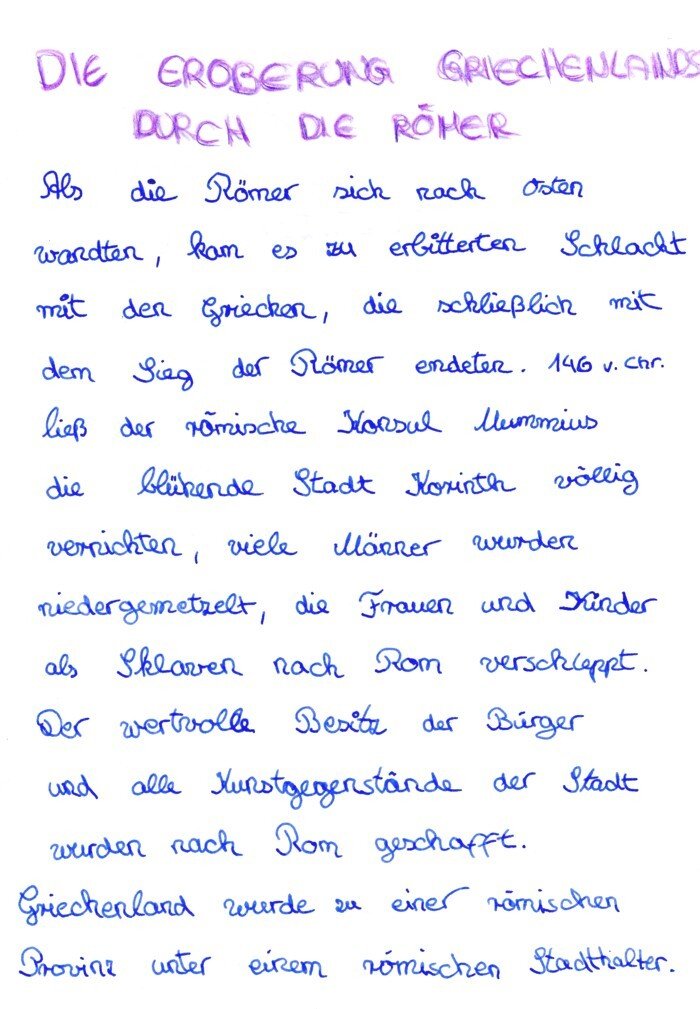 DIE EROBERUNG GRIECHENLANDS
DURCH DIE RÖMER
Als die Römer sich nach Osten
wandten, kam es zu erbitterten Schlacht
mit den Griechen, die schließlich mit
dem Sieg der Römer endeten. 146 v. Chr.
ließ der römische Konsul Mummius
die blühende Stadt Korinth völlig
vernichten, viele Männer wurden
niedergemetzelt, die Frauen und Kinder
als Sklaven nach Rom verschleppt.
Der wertvolle Besitz der Bürger
und alle Kunstgegenstände der Stadt
wurden nach Rom geschafft.
Griechenland wurde zu einer römischen
Provinz unter einem römischen Stadthalter.